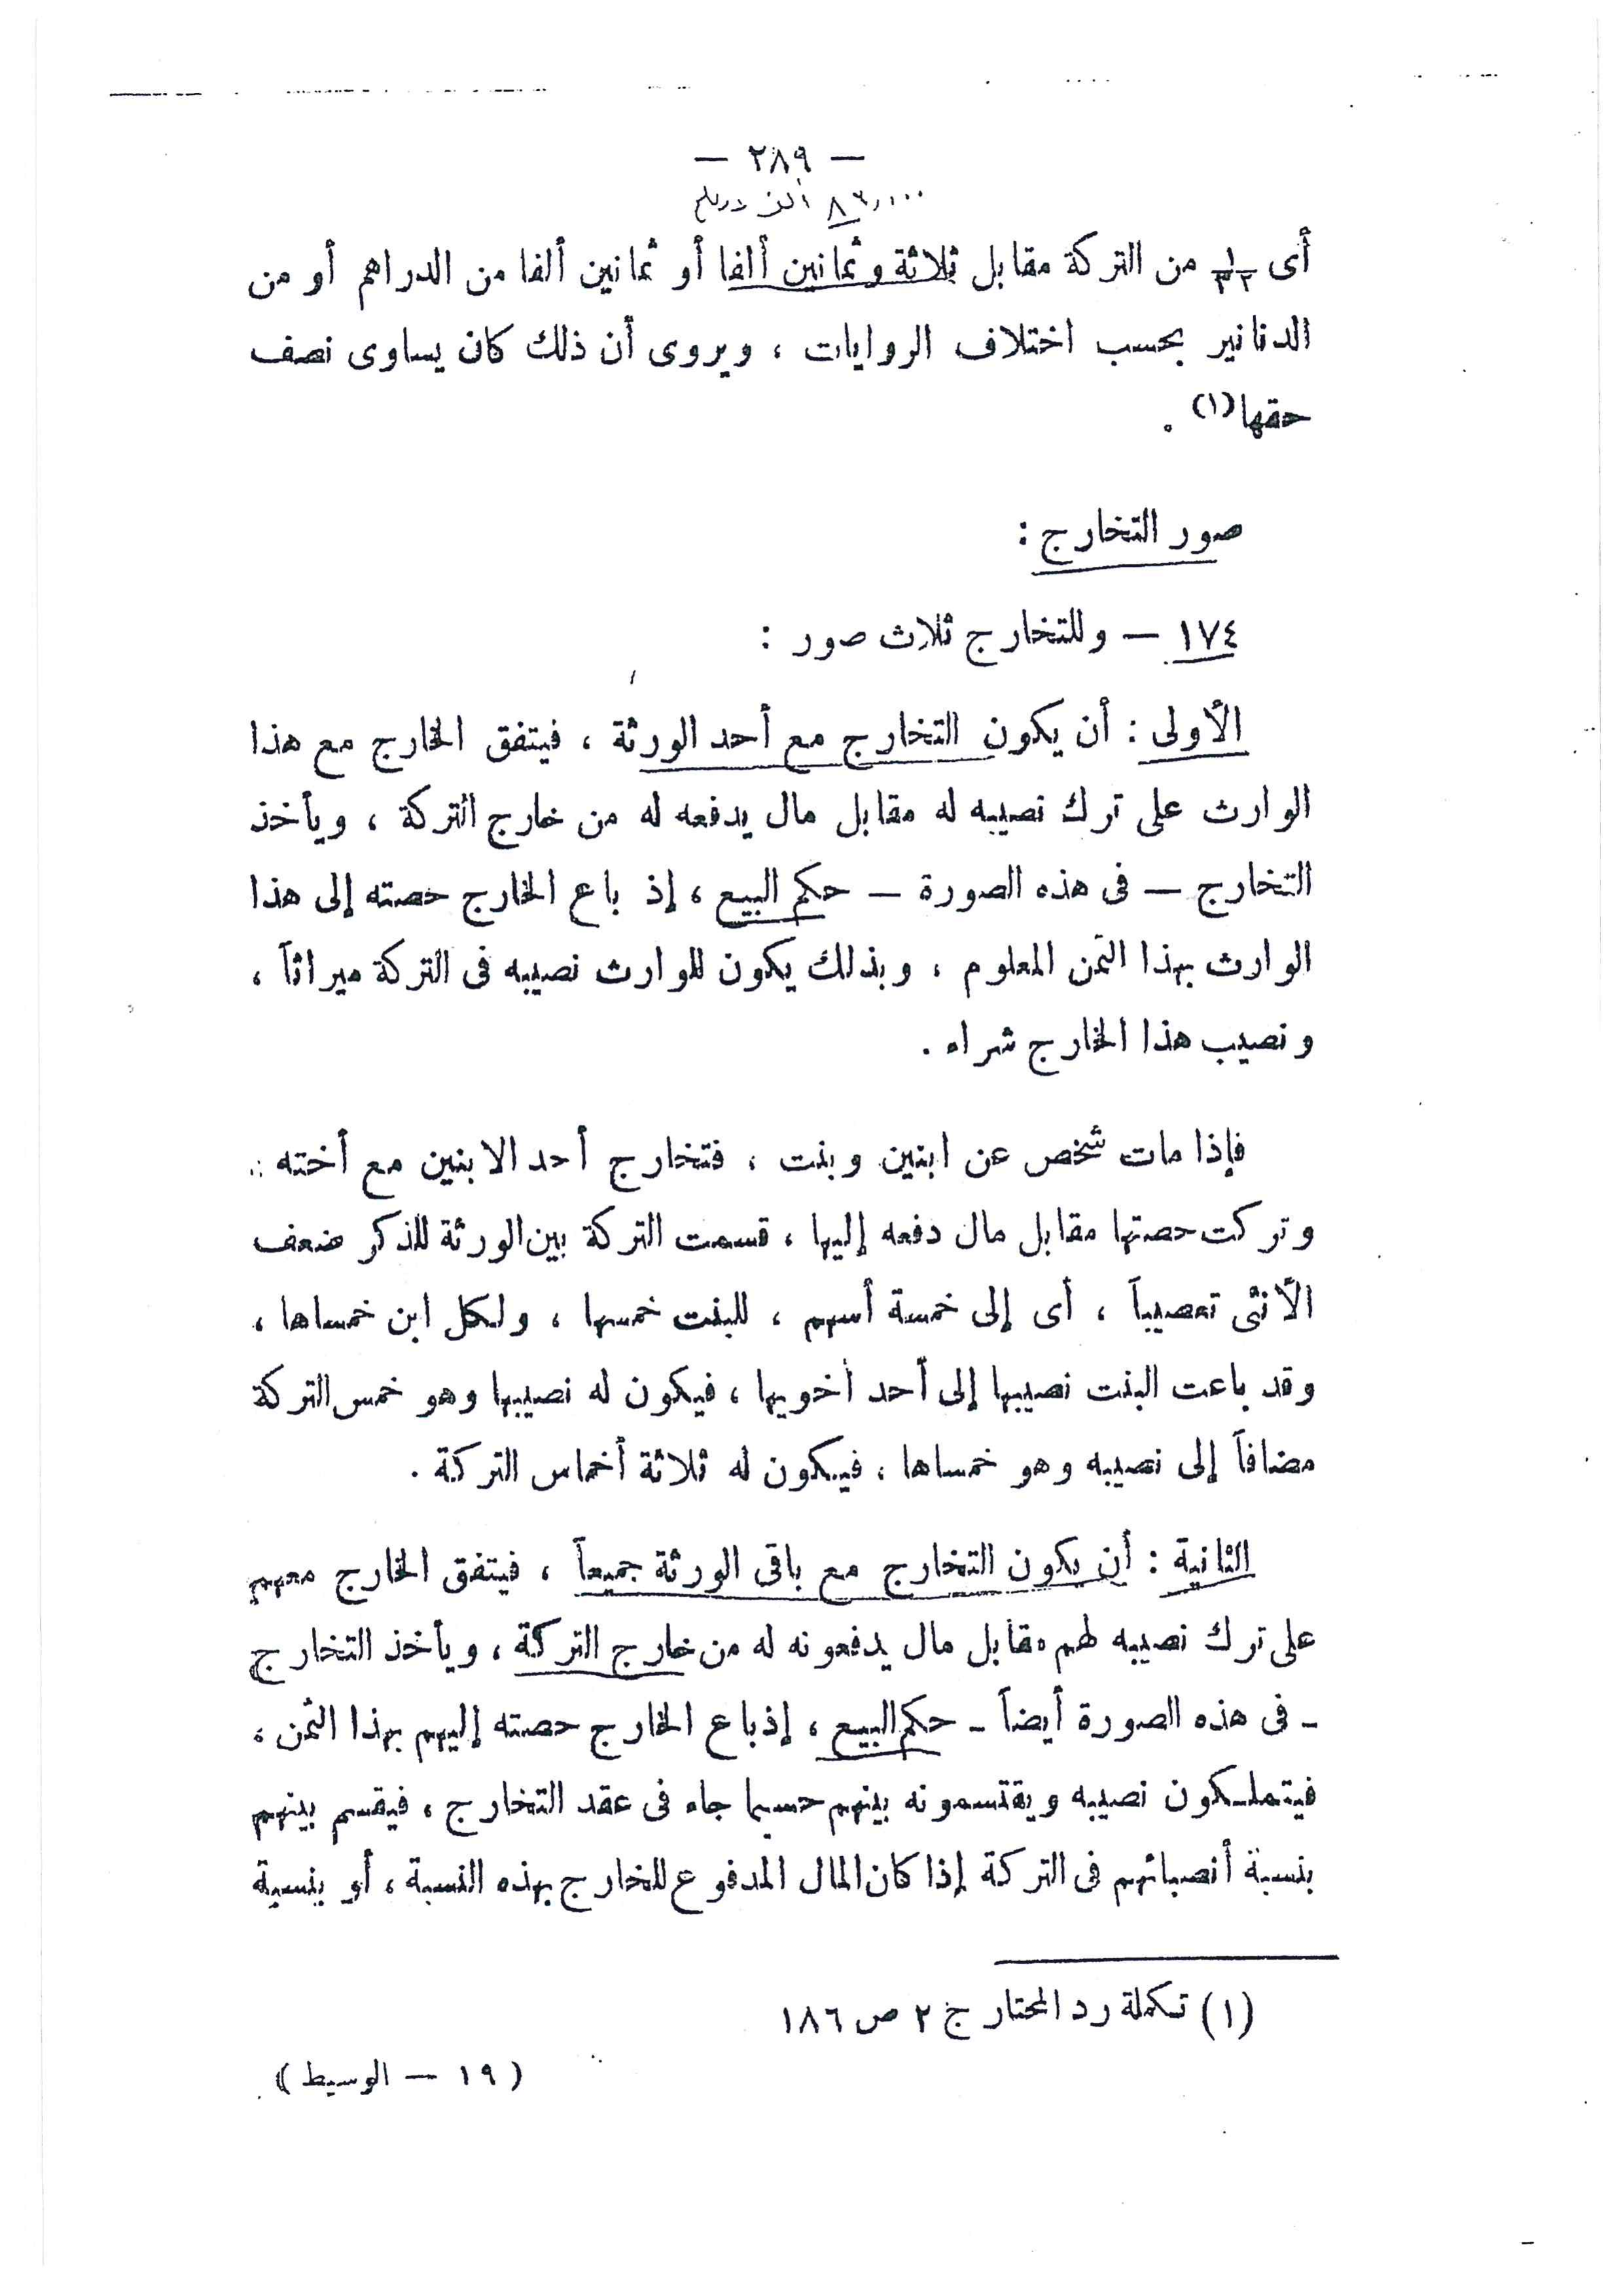 — ٢٨٩ —
٨٣٫٠٠٠ ألف درهم
أى ١/٣٢ من التركة مقابل ثلاثة وثمانين ألفا أو ثمانين ألفا من الدراهم أو من
الدنانير بحسب اختلاف الروايات ، ويروى أن ذلك كان يساوى نصف
حقها(١) .
صور التخارج :
١٧٤ — وللتخارج ثلاث صور :
الأولى : أن يكون التخارج مع أحد الورثة ، فيتفق الخارج مع هذا
الوارث على ترك نصيبه له مقابل مال يدفعه له من خارج التركة ، ويأخذ
التخارج — فى هذه الصورة — حكم البيع ، إذ باع الخارج حصته إلى هذا
الوارث بهذا الثمن المعلوم ، وبذلك يكون للوارث نصيبه فى التركة ميراثاً ،
ونصيب هذا الخارج شراء .
فإذا مات شخص عن ابنين وبنت ، فتخارج أحد الابنين مع أخته .
وتركت حصتها مقابل مال دفعه إليها ، قسمت التركة بين الورثة للذكر ضعف
الأنثى تعصيباً ، أى إلى خمسة أسهم ، للبنت خمسها ، ولكل ابن خمساها ،
وقد باعت البنت نصيبها إلى أحد أخويها ، فيكون له نصيبها وهو خمس التركة
مضافاً إلى نصيبه وهو خمساها ، فيكون له ثلاثة أخماس التركة .
الثانية : أن يكون التخارج مع باقى الورثة جميعاً ، فيتفق الخارج معهم
على ترك نصيبه لهم مقابل مال يدفعونه له من خارج التركة ، ويأخذ التخارج
– فى هذه الصورة أيضاً – حكم البيع ، إذ باع الخارج حصته إليهم بهذا الثمن ،
فيتملكون نصيبه ويقتسمونه بينهم حسبما جاء فى عقد التخارج ، فيقسم بينهم
بنسبة أنصبائهم فى التركة إذا كان المال المدفوع للخارج بهذه النسبة ، أو بنسبة
(١) تكملة رد المحتار ج ٢ ص ١٨٦
(١٩ — الوسيط)